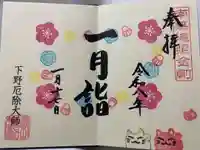 奉拝
令和八年
一月詣
一月十一日
下野厄除大師